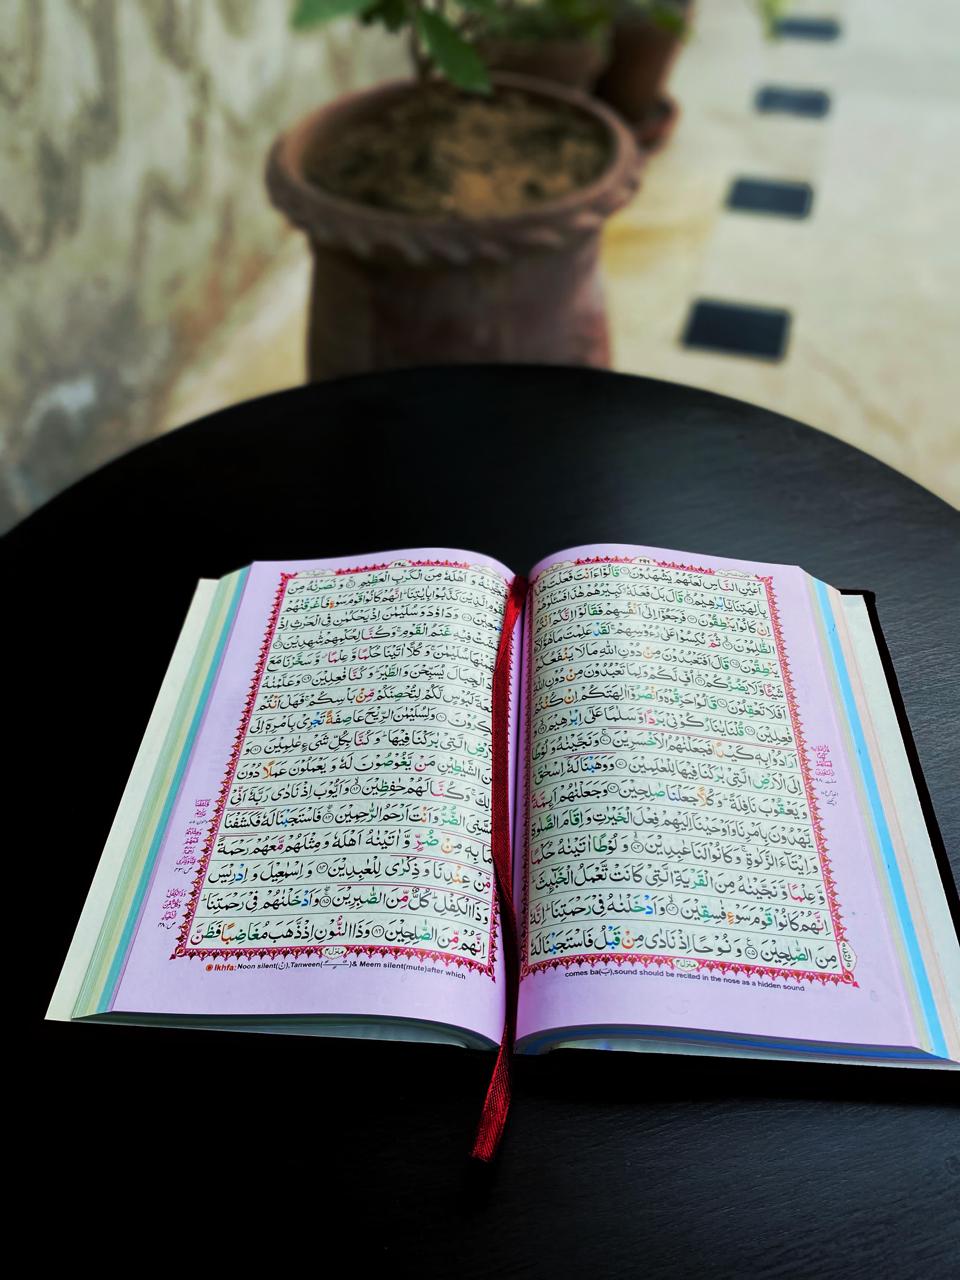 اَعْيُنِ النَّاسِ لَعَلَّهُمْ يَشْهَدُوْنَ ۝ قَالُوْۤا ءَاَنْتَ فَعَلْتَ
بِاٰلِهَتِنَا يٰۤاِبْرٰهِيْمُ ۝ قَالَ بَلْ فَعَلَهٗ كَبِيْرُهُمْ هٰذَا
اِنْ كَانُوْا يَنْطِقُوْنَ ۝ فَرَجَعُوْۤا اِلٰۤى اَنْفُسِهِمْ فَقَالُوْۤا اِنَّكُمْ
الظّٰلِمُوْنَ ۝ ثُمَّ نُكِسُوْا عَلٰى رُءُوْسِهِمْ لَقَدْ عَلِمْتَ مَا هٰۤؤُلَآءِ
يَنْطِقُوْنَ ۝ قَالَ اَفَتَعْبُدُوْنَ مِنْ دُوْنِ اللّٰهِ مَا لَا يَنْفَعُكُمْ
شَيْـًٔا وَّلَا يَضُرُّكُمْ ۝ اُفٍّ لَّكُمْ وَلِمَا تَعْبُدُوْنَ مِنْ دُوْنِ اللّٰهِ
اَفَلَا تَعْقِلُوْنَ ۝ قَالُوْا حَرِّقُوْهُ وَانْصُرُوْۤا اٰلِهَتَكُمْ اِنْ كُنْتُمْ
فٰعِلِيْنَ ۝ قُلْنَا يٰنَارُ كُوْنِيْ بَرْدًا وَّسَلٰمًا عَلٰۤى اِبْرٰهِيْمَ ۝ وَ
اَرَادُوْا بِهٖ كَيْدًا فَجَعَلْنٰهُمُ الْاَخْسَرِيْنَ ۝ وَنَجَّيْنٰهُ وَلُوْطًا
اِلَى الْاَرْضِ الَّتِيْ بٰرَكْنَا فِيْهَا لِلْعٰلَمِيْنَ ۝ وَوَهَبْنَا لَهٗۤ اِسْحٰقَ
وَ يَعْقُوْبَ نَافِلَةً وَكُلًّا جَعَلْنَا صٰلِحِيْنَ ۝ وَجَعَلْنٰهُمْ اَئِمَّةً
يَّهْدُوْنَ بِاَمْرِنَا وَاَوْحَيْنَاۤ اِلَيْهِمْ فِعْلَ الْخَيْرٰتِ وَاِقَامَ الصَّلٰوةِ
وَاِيْتَآءَ الزَّكٰوةِ وَكَانُوْا لَنَا عٰبِدِيْنَ ۝ وَ لُوْطًا اٰتَيْنٰهُ حُكْمًا
وَّ عِلْمًا وَّنَجَّيْنٰهُ مِنَ الْقَرْيَةِ الَّتِيْ كَانَتْ تَّعْمَلُ الْخَبٰٓئِثَ
اِنَّهُمْ كَانُوْا قَوْمَ سَوْءٍ فٰسِقِيْنَ ۝ وَاَدْخَلْنٰهُ فِيْ رَحْمَتِنَا اِنَّهٗ
مِنَ الصّٰلِحِيْنَ ۝ وَ نُوْحًا اِذْ نَادٰى مِنْ قَبْلُ فَاسْتَجَبْنَا لَهٗ
comes ba(ب),sound should be recited in the nose as a hidden sound
وَ اَهْلَهٗ مِنَ الْكَرْبِ الْعَظِيْمِ ۝ وَ نَصَرْنٰهُ مِنَ
الَّذِيْنَ كَذَّبُوْا بِاٰيٰتِنَا اِنَّهُمْ كَانُوْا قَوْمَ سَوْءٍ فَاَغْرَقْنٰهُمْ
وَ دَاوٗدَ وَ سُلَيْمٰنَ اِذْ يَحْكُمٰنِ فِي الْحَرْثِ اِذْ
فِيْهِ غَنَمُ الْقَوْمِ وَ كُنَّا لِحُكْمِهِمْ شٰهِدِيْنَ ۝
سُلَيْمٰنَ وَ كُلًّا اٰتَيْنَا حُكْمًا وَّ عِلْمًا وَّ سَخَّرْنَا مَعَ
الْجِبَالَ يُسَبِّحْنَ وَ الطَّيْرَ وَ كُنَّا فٰعِلِيْنَ ۝ وَ عَلَّمْنٰهُ
لَبُوْسٍ لَّكُمْ لِتُحْصِنَكُمْ مِّنْ بَاْسِكُمْ فَهَلْ اَنْتُمْ
وَ لِسُلَيْمٰنَ الرِّيْحَ عَاصِفَةً تَجْرِيْ بِاَمْرِهٖۤ اِلَى
الَّتِيْ بٰرَكْنَا فِيْهَا وَ كُنَّا بِكُلِّ شَيْءٍ عٰلِمِيْنَ ۝ وَ
الشَّيٰطِيْنِ مَنْ يَّغُوْصُوْنَ لَهٗ وَ يَعْمَلُوْنَ عَمَلًا دُوْنَ
وَ كُنَّا لَهُمْ حٰفِظِيْنَ ۝ وَ اَيُّوْبَ اِذْ نَادٰى رَبَّهٗۤ اَنِّيْ
مَسَّنِيَ الضُّرُّ وَ اَنْتَ اَرْحَمُ الرّٰحِمِيْنَ ۝ فَاسْتَجَبْنَا لَهٗ فَكَشَفْنَا
مَا بِهٖ مِنْ ضُرٍّ وَّ اٰتَيْنٰهُ اَهْلَهٗ وَ مِثْلَهُمْ مَّعَهُمْ رَحْمَةً
مِّنْ عِنْدِنَا وَ ذِكْرٰى لِلْعٰبِدِيْنَ ۝ وَ اِسْمٰعِيْلَ وَ اِدْرِيْسَ
وَ ذَا الْكِفْلِ كُلٌّ مِّنَ الصّٰبِرِيْنَ ۝ وَ اَدْخَلْنٰهُمْ فِيْ رَحْمَتِنَا
اِنَّهُمْ مِّنَ الصّٰلِحِيْنَ ۝ وَ ذَا النُّوْنِ اِذْ ذَّهَبَ مُغَاضِبًا فَظَنَّ
Ikhfa: Noon silent(نْ),Tanween( ـًـٍـٌ )& Meem silent(mute)after which